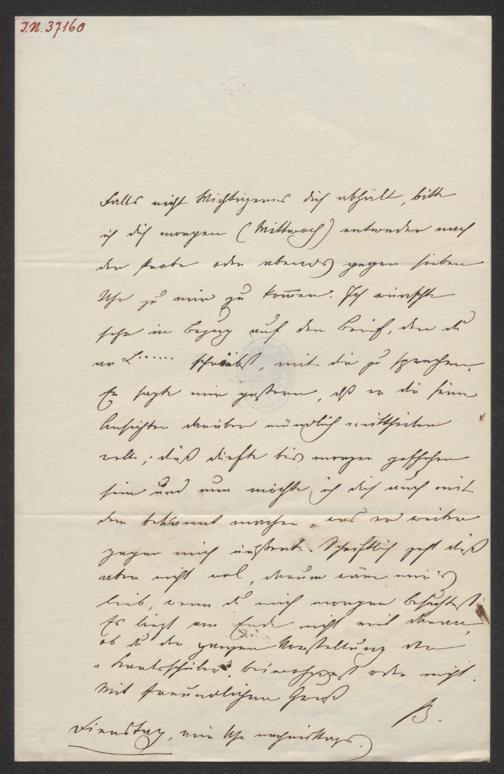 I.N. 37160
Falls nicht Wichtigeres dich abhält, bitte
ich dich morgen (Mittwoch) entweder nach
der Probe oder abends gegen sieben
Uhr zu mir zu kommen. Ich wünschte
sehr in Bezug auf den Brief, den du
an L...... schreibst, mit dir zu sprechen.
Er sagte mir gestern, daß er dir seine
Ansichten darüber mündlich mittheilen
wolle; dieß dürfte bis morgen geschehen
sein und nun möchte ich dich auch mit
dem bekannt machen, was er weiter
gegen mich äußerte. Schriftlich geht dieß
aber nicht wol, darum wäre mir's
lieb, wenn du mich morgen besuchtest.
Es liegt am Ende nicht viel daran,
ob du der ganzen Vorstellung der
"Karlsschüler" beiwohnest oder nicht.
Mit freundlichem Gruß
B.
Dienstag, ein Uhr nachmittags.